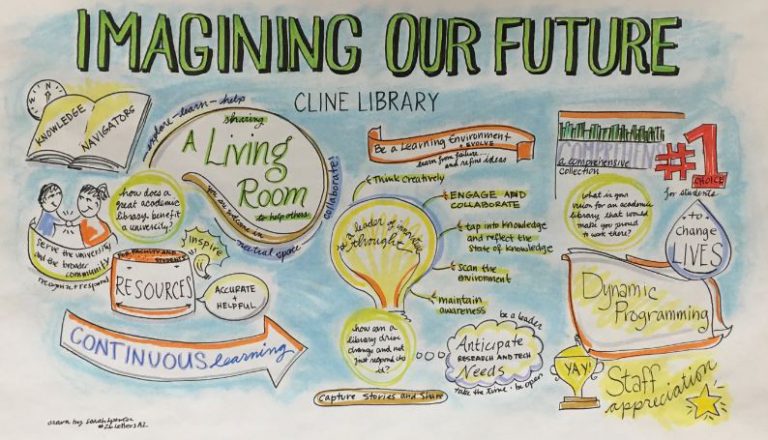 IMAGINING OUR FUTURE
CLINE LIBRARY
KNOWLEDGE
NAVIGATORS
explore - learn - help
sharing
A LIVING
ROOM
to help others
you are welcome in
neutral space
collaborate!
how does a
great academic
library benefit
a university?
Serve the university
and the broader
community
recognize + respond
FOR FACULTY AND
STUDENTS
RESOURCES
inspire
ACCURATE
+
HELPFUL
CONTINUOUS learning
Be a Learning Environment
+ EVOLVE
learn from failure
and refine ideas
Think creatively
ENGAGE AND
COLLABORATE
tap into knowledge
and reflect the
state of knowledge
scan the
environment
maintain
awareness
a leader of innovative
thought
how can a
library drive
change and not
just respond to
it?
be a leader
Anticipate
RESEARCH AND TECH
Needs
take the time • be open
Capture Stories and Share
COMPREHEN
a comprehensive
collection
#1
CHOICE
for students
what is your
vision for an academic
library that would
make you proud
to work there?
to
change
LIVES
Dynamic
Programming
YAY!
Staff
appreciation
drawn by
#26LettersAZ